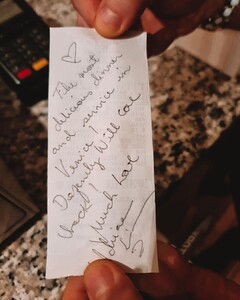 The most
delicious dinner
and service in
Venice!
Definitely will come
back!
Much Love